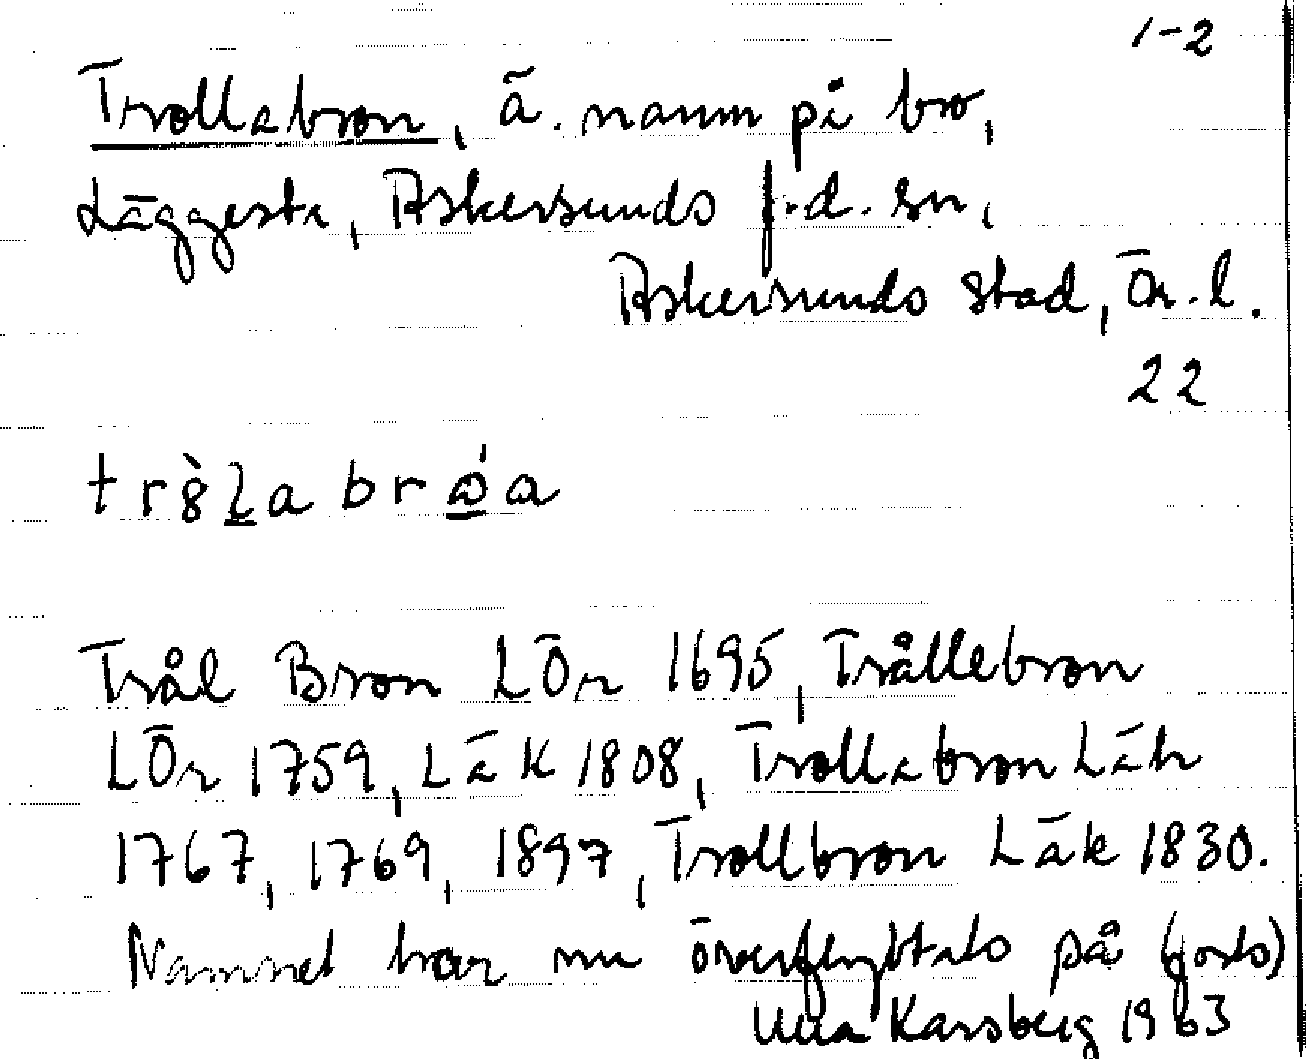 1-2
Trollabron, ä. namn på bro,
Läggesta, Askersunds f.d. sn,
Askersunds stad, Ör.l.
22
Trål Bron LÖr 1695, Trållebron
LÖr 1759, LäK 1808, Trollabron Läh
1767, 1769, 1897, Trollbron Läk 1830.
Namnet har nu överflyttats på (forts)
Ulla Karsberg 1963